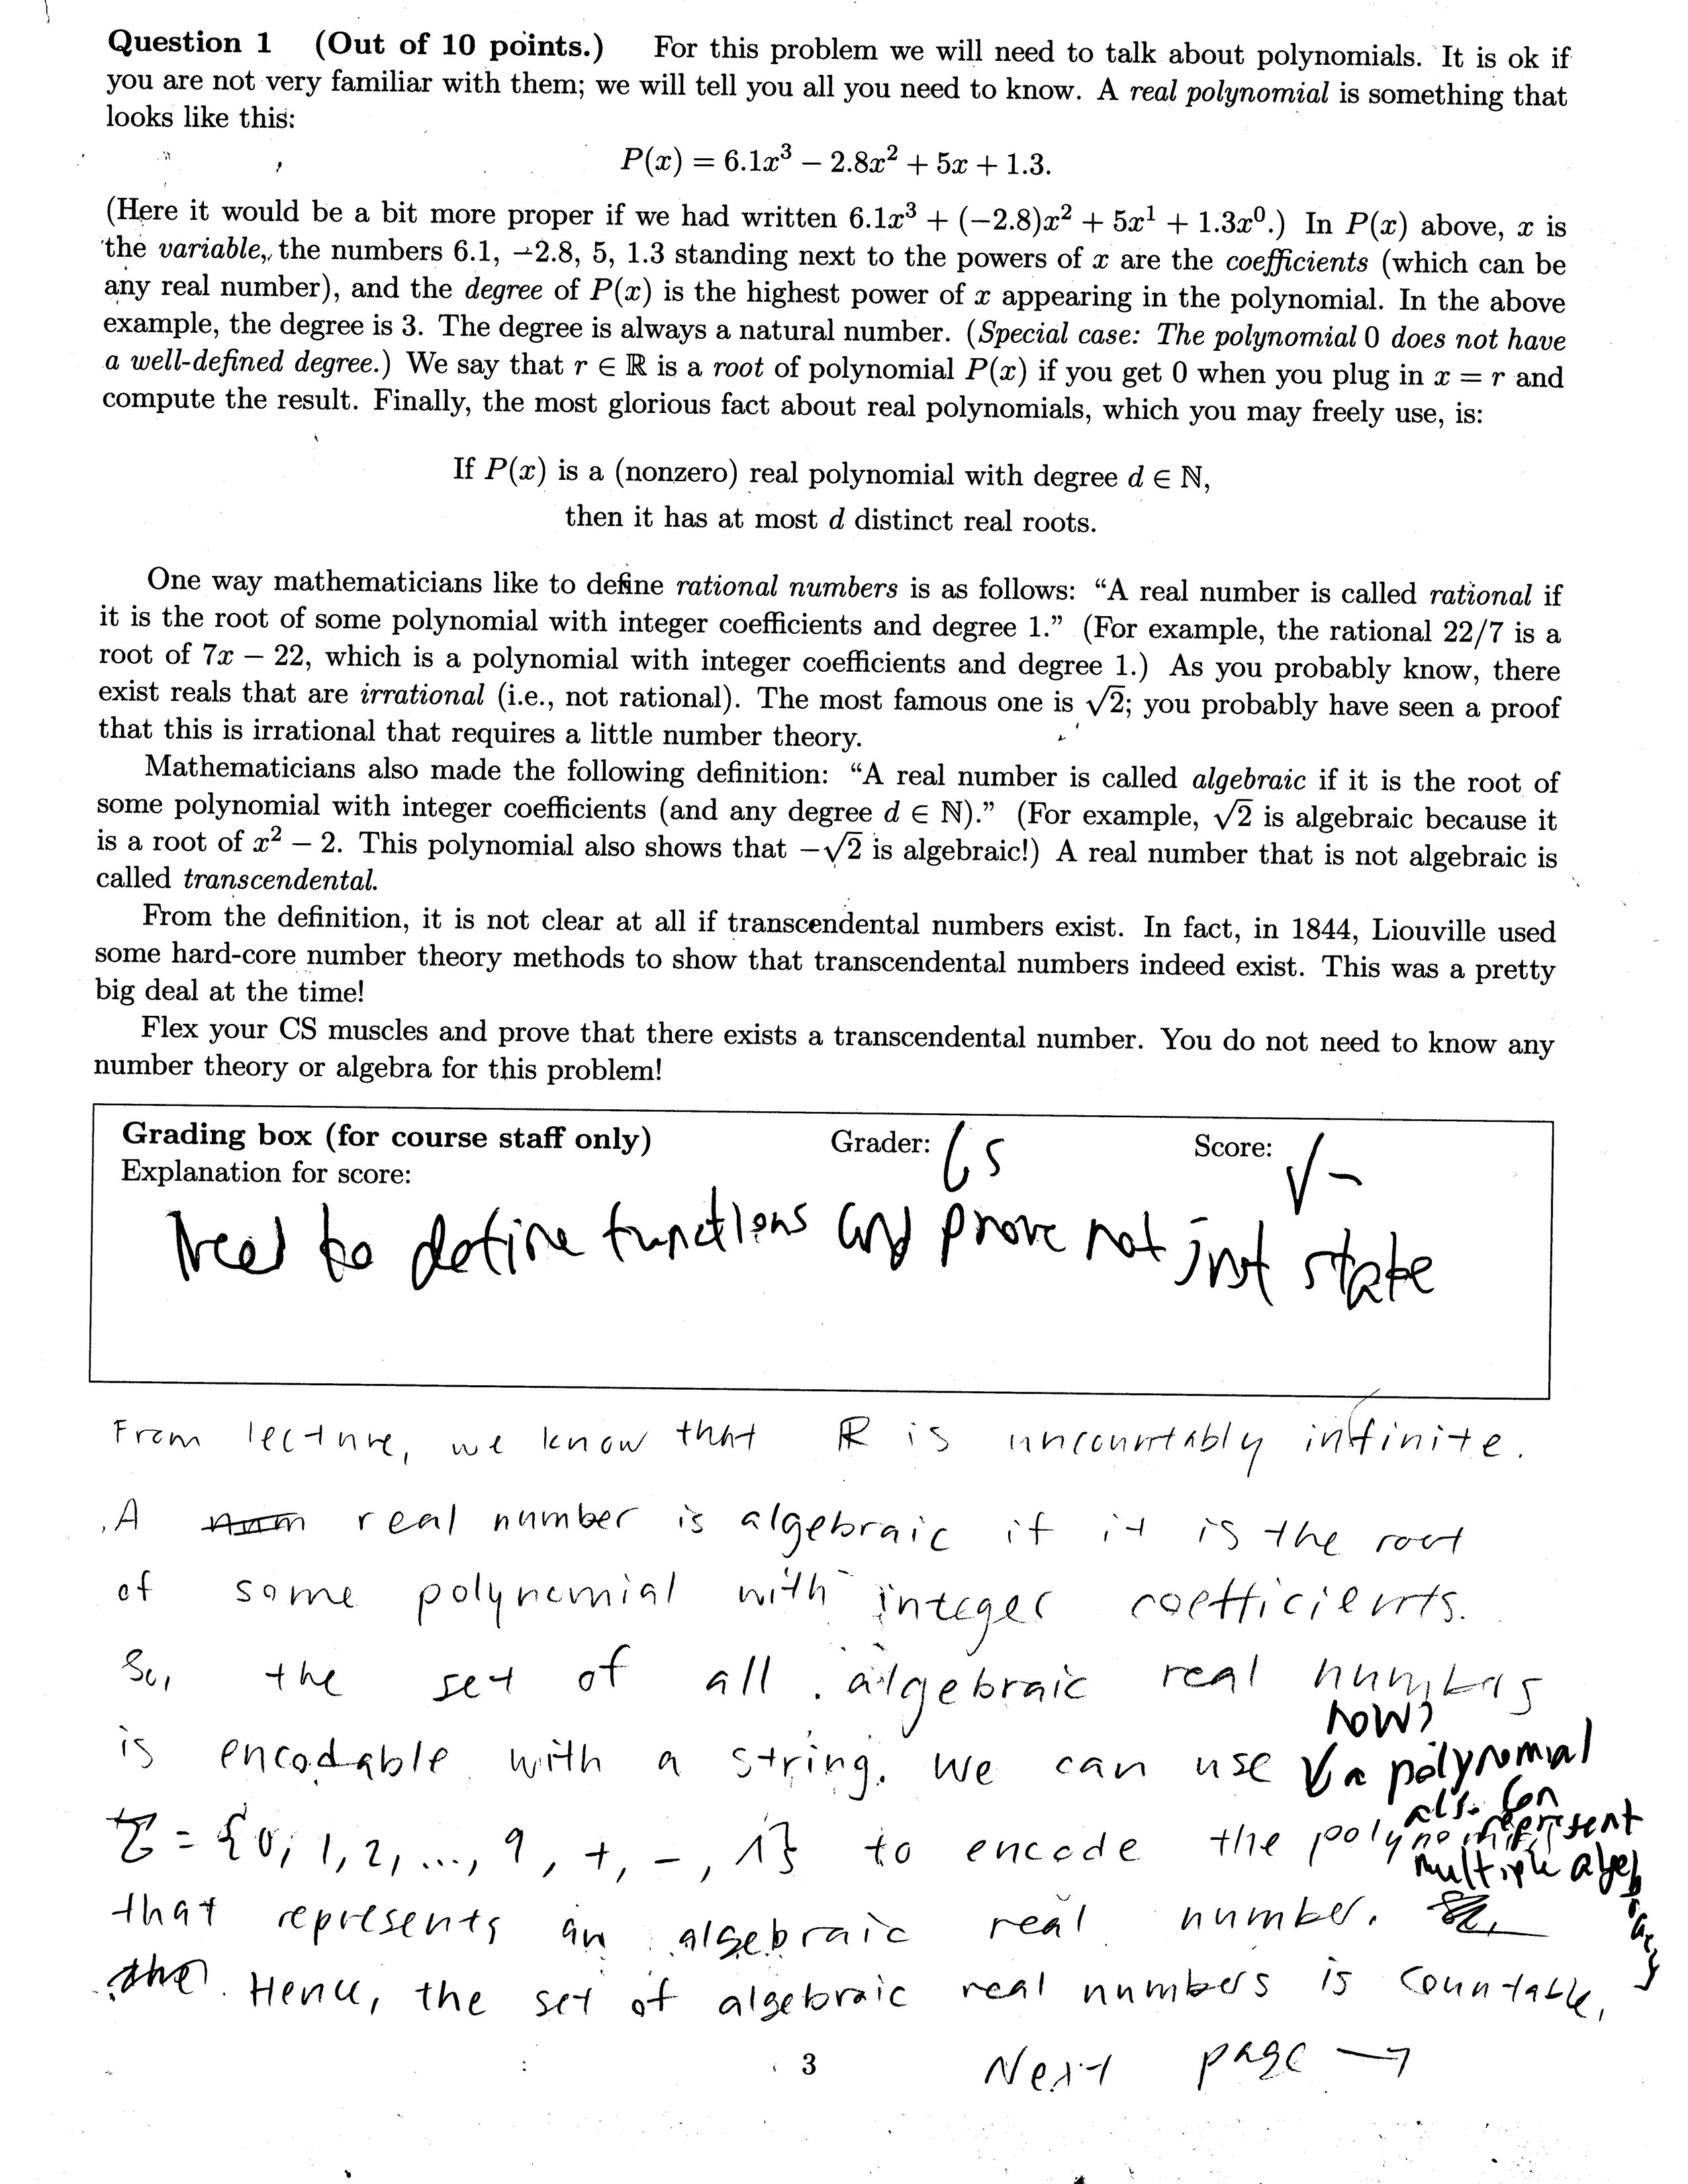 Question 1 (Out of 10 points.) For this problem we will need to talk about polynomials. It is ok if
you are not very familiar with them; we will tell you all you need to know. A real polynomial is something that
looks like this:
P(x) = 6.1x³ − 2.8x² + 5x + 1.3.
(Here it would be a bit more proper if we had written 6.1x³ + (−2.8)x² + 5x¹ + 1.3x⁰.) In P(x) above, x is
the variable, the numbers 6.1, −2.8, 5, 1.3 standing next to the powers of x are the coefficients (which can be
any real number), and the degree of P(x) is the highest power of x appearing in the polynomial. In the above
example, the degree is 3. The degree is always a natural number. (Special case: The polynomial 0 does not have
a well-defined degree.) We say that r ∈ ℝ is a root of polynomial P(x) if you get 0 when you plug in x = r and
compute the result. Finally, the most glorious fact about real polynomials, which you may freely use, is:
If P(x) is a (nonzero) real polynomial with degree d ∈ ℕ,
then it has at most d distinct real roots.
One way mathematicians like to define rational numbers is as follows: “A real number is called rational if
it is the root of some polynomial with integer coefficients and degree 1.” (For example, the rational 22/7 is a
root of 7x − 22, which is a polynomial with integer coefficients and degree 1.) As you probably know, there
exist reals that are irrational (i.e., not rational). The most famous one is √2; you probably have seen a proof
that this is irrational that requires a little number theory.
Mathematicians also made the following definition: “A real number is called algebraic if it is the root of
some polynomial with integer coefficients (and any degree d ∈ ℕ).” (For example, √2 is algebraic because it
is a root of x² − 2. This polynomial also shows that −√2 is algebraic!) A real number that is not algebraic is
called transcendental.
From the definition, it is not clear at all if transcendental numbers exist. In fact, in 1844, Liouville used
some hard-core number theory methods to show that transcendental numbers indeed exist. This was a pretty
big deal at the time!
Flex your CS muscles and prove that there exists a transcendental number. You do not need to know any
number theory or algebra for this problem!
Grading box (for course staff only) Grader: Score: √−
Explanation for score:
Need to define functions and prove not just state
From lecture, we know that ℝ is uncountably infinite.
A real number is algebraic if it is the root
of some polynomial with integer coefficients.
So, the set of all algebraic real numbers
how?
is encodable with a string. We can use
a polynomial
also can
represent
multiple algebraic
Σ = {0, 1, 2, ..., 9, +, −, ^} to encode the polynomial
that represents an algebraic real number.
Hence, the set of algebraic real numbers is countable.
3 Next page →